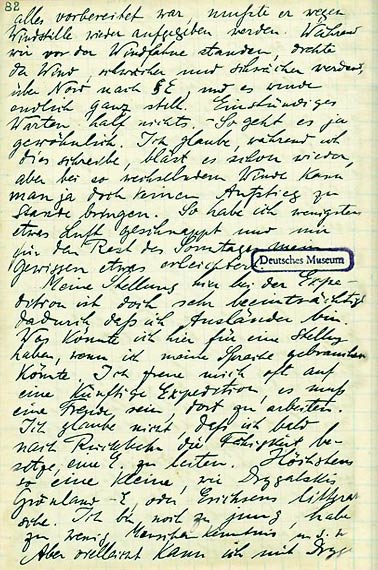 82
alles vorbereitet war, mußte er wegen
Windstille wieder aufgegeben werden. Während
wir vor der Windfahne standen, drehte
der Wind, schwächer und schwächer werdend,
über Nord nach SE, und es wurde
endlich ganz still. Einstündiges
Warten half nichts. – So geht es ja
gewöhnlich. Ich glaube, während ich
dies schreibe, bläst es schon wieder,
aber bei so wechselndem Winde kann
man ja doch keinen Aufstieg zu
stande bringen. So habe ich wenigstens
etwas Luft geschnappt und mir
für den Rest des Sonntags mein
Gewissen etwas erleichtert.
Deutsches Museum
Meine Stellung hier bei der Expe-
dition ist doch sehr beeinträchtigt
dadurch, daß ich Ausländer bin.
Was könnte ich hier für eine Stellung
haben, wenn ich meine Sprache gebrauchen
könnte. Ich freue mich oft auf
eine künftige Expedition, es muß
eine Freude sein, dort zu arbeiten.
Ich glaube nicht, daß ich bald
nach Rückkehr die Fähigkeit be-
sitze, eine E. zu leiten. Höchstens
so eine kleine, wie Drygalskis
Grönland-E, oder Erichsens littera-
rische. Ich bin noch zu jung, habe
zu wenig Menschenkenntnis, u.s.w.
Aber vielleicht kann ich mit